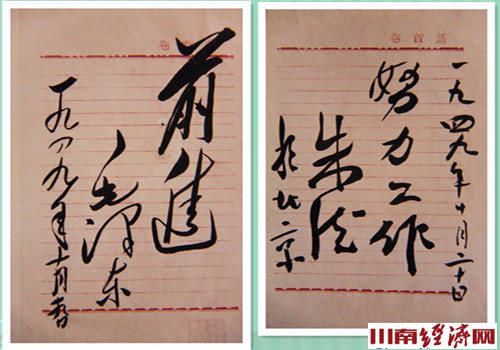 卷
前進
毛澤东
一九四九年十月
卷首語
一九四九年十月二十日
努力工作
朱德
於北京
川南經濟网